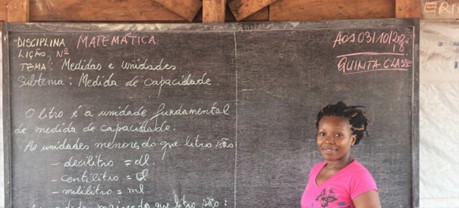 DISCIPLINA MATEMÁTICA
LIÇÃO Nº
TEMA: Medidas e Unidades
Subtema: Medida de capacidade
O litro é a unidade fundamental
de medida de capacidade.
As unidades menores do que litro são
- decilitro = dl.
- centilitro = cl
- mililitro = ml
do que litro são:
AOS 03/10/20
18
QUINTA CLASSE